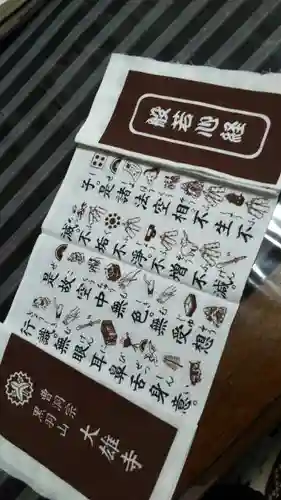 般若心経
子是諸法空相不生不
滅不垢不浄不増不減
是故空中無色無受想
行識無眼耳鼻舌身意
曹洞宗
黒羽山
大雄寺